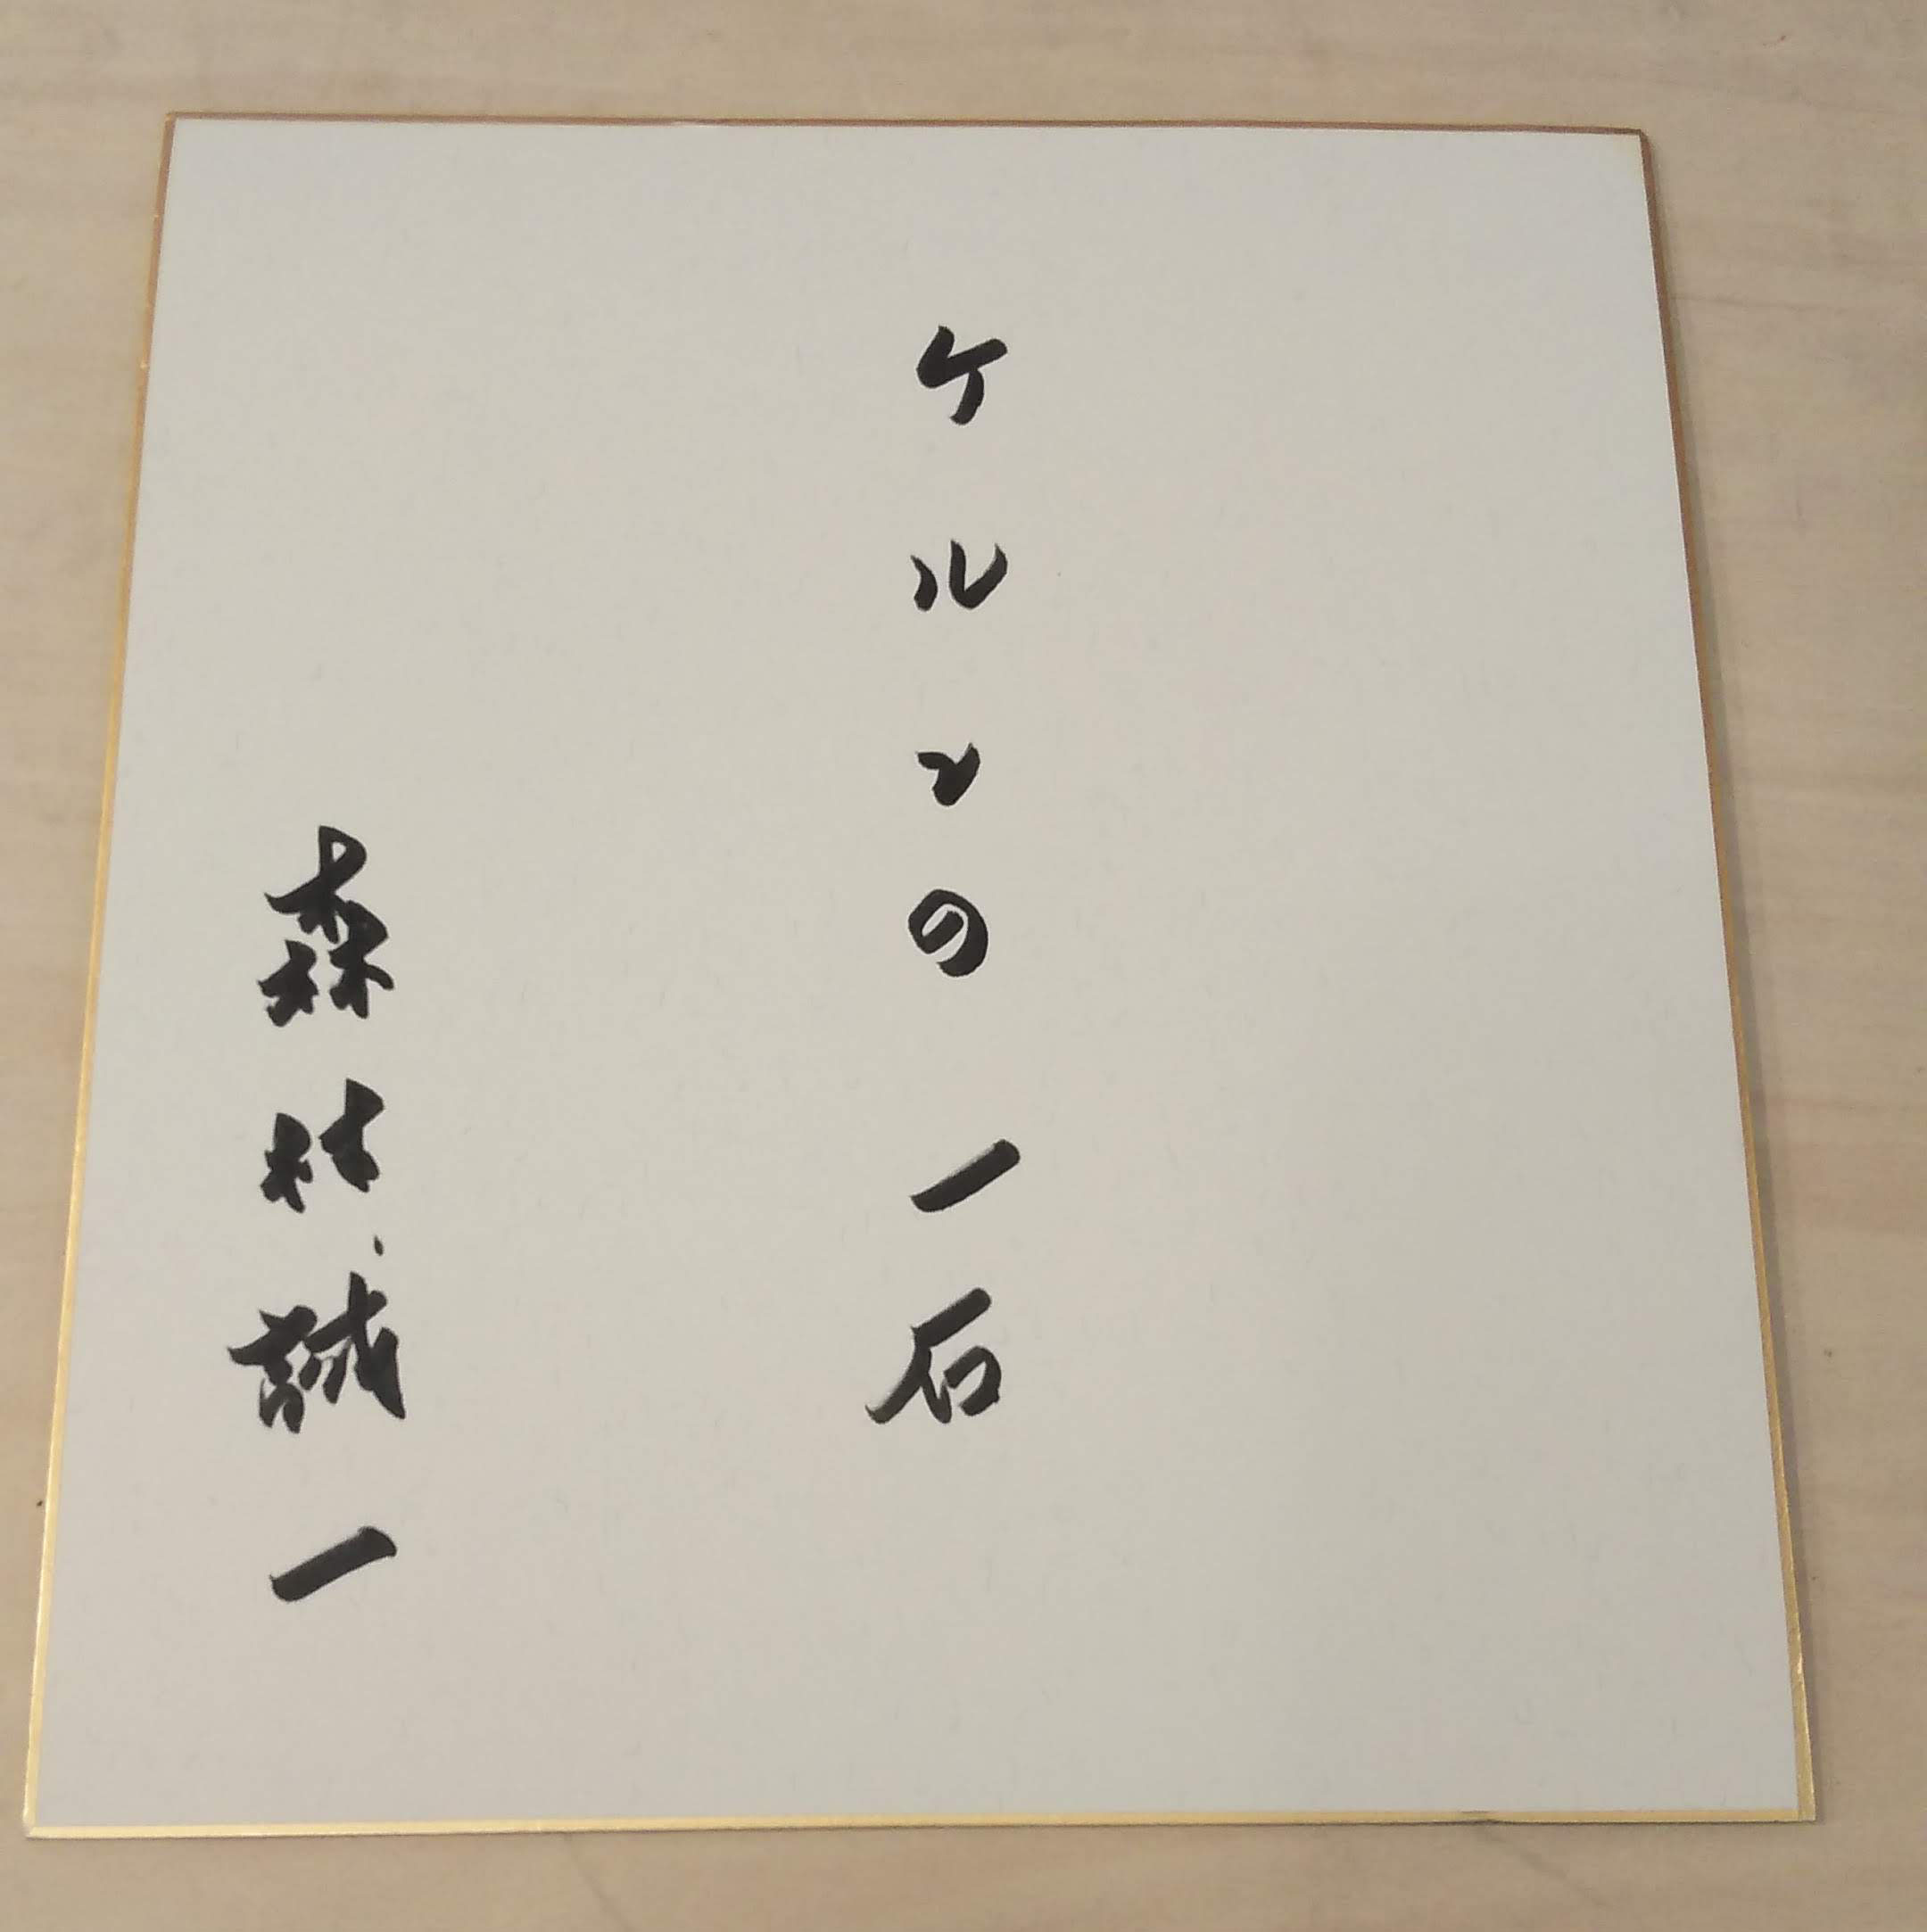 ケルンの一石
森村誠一